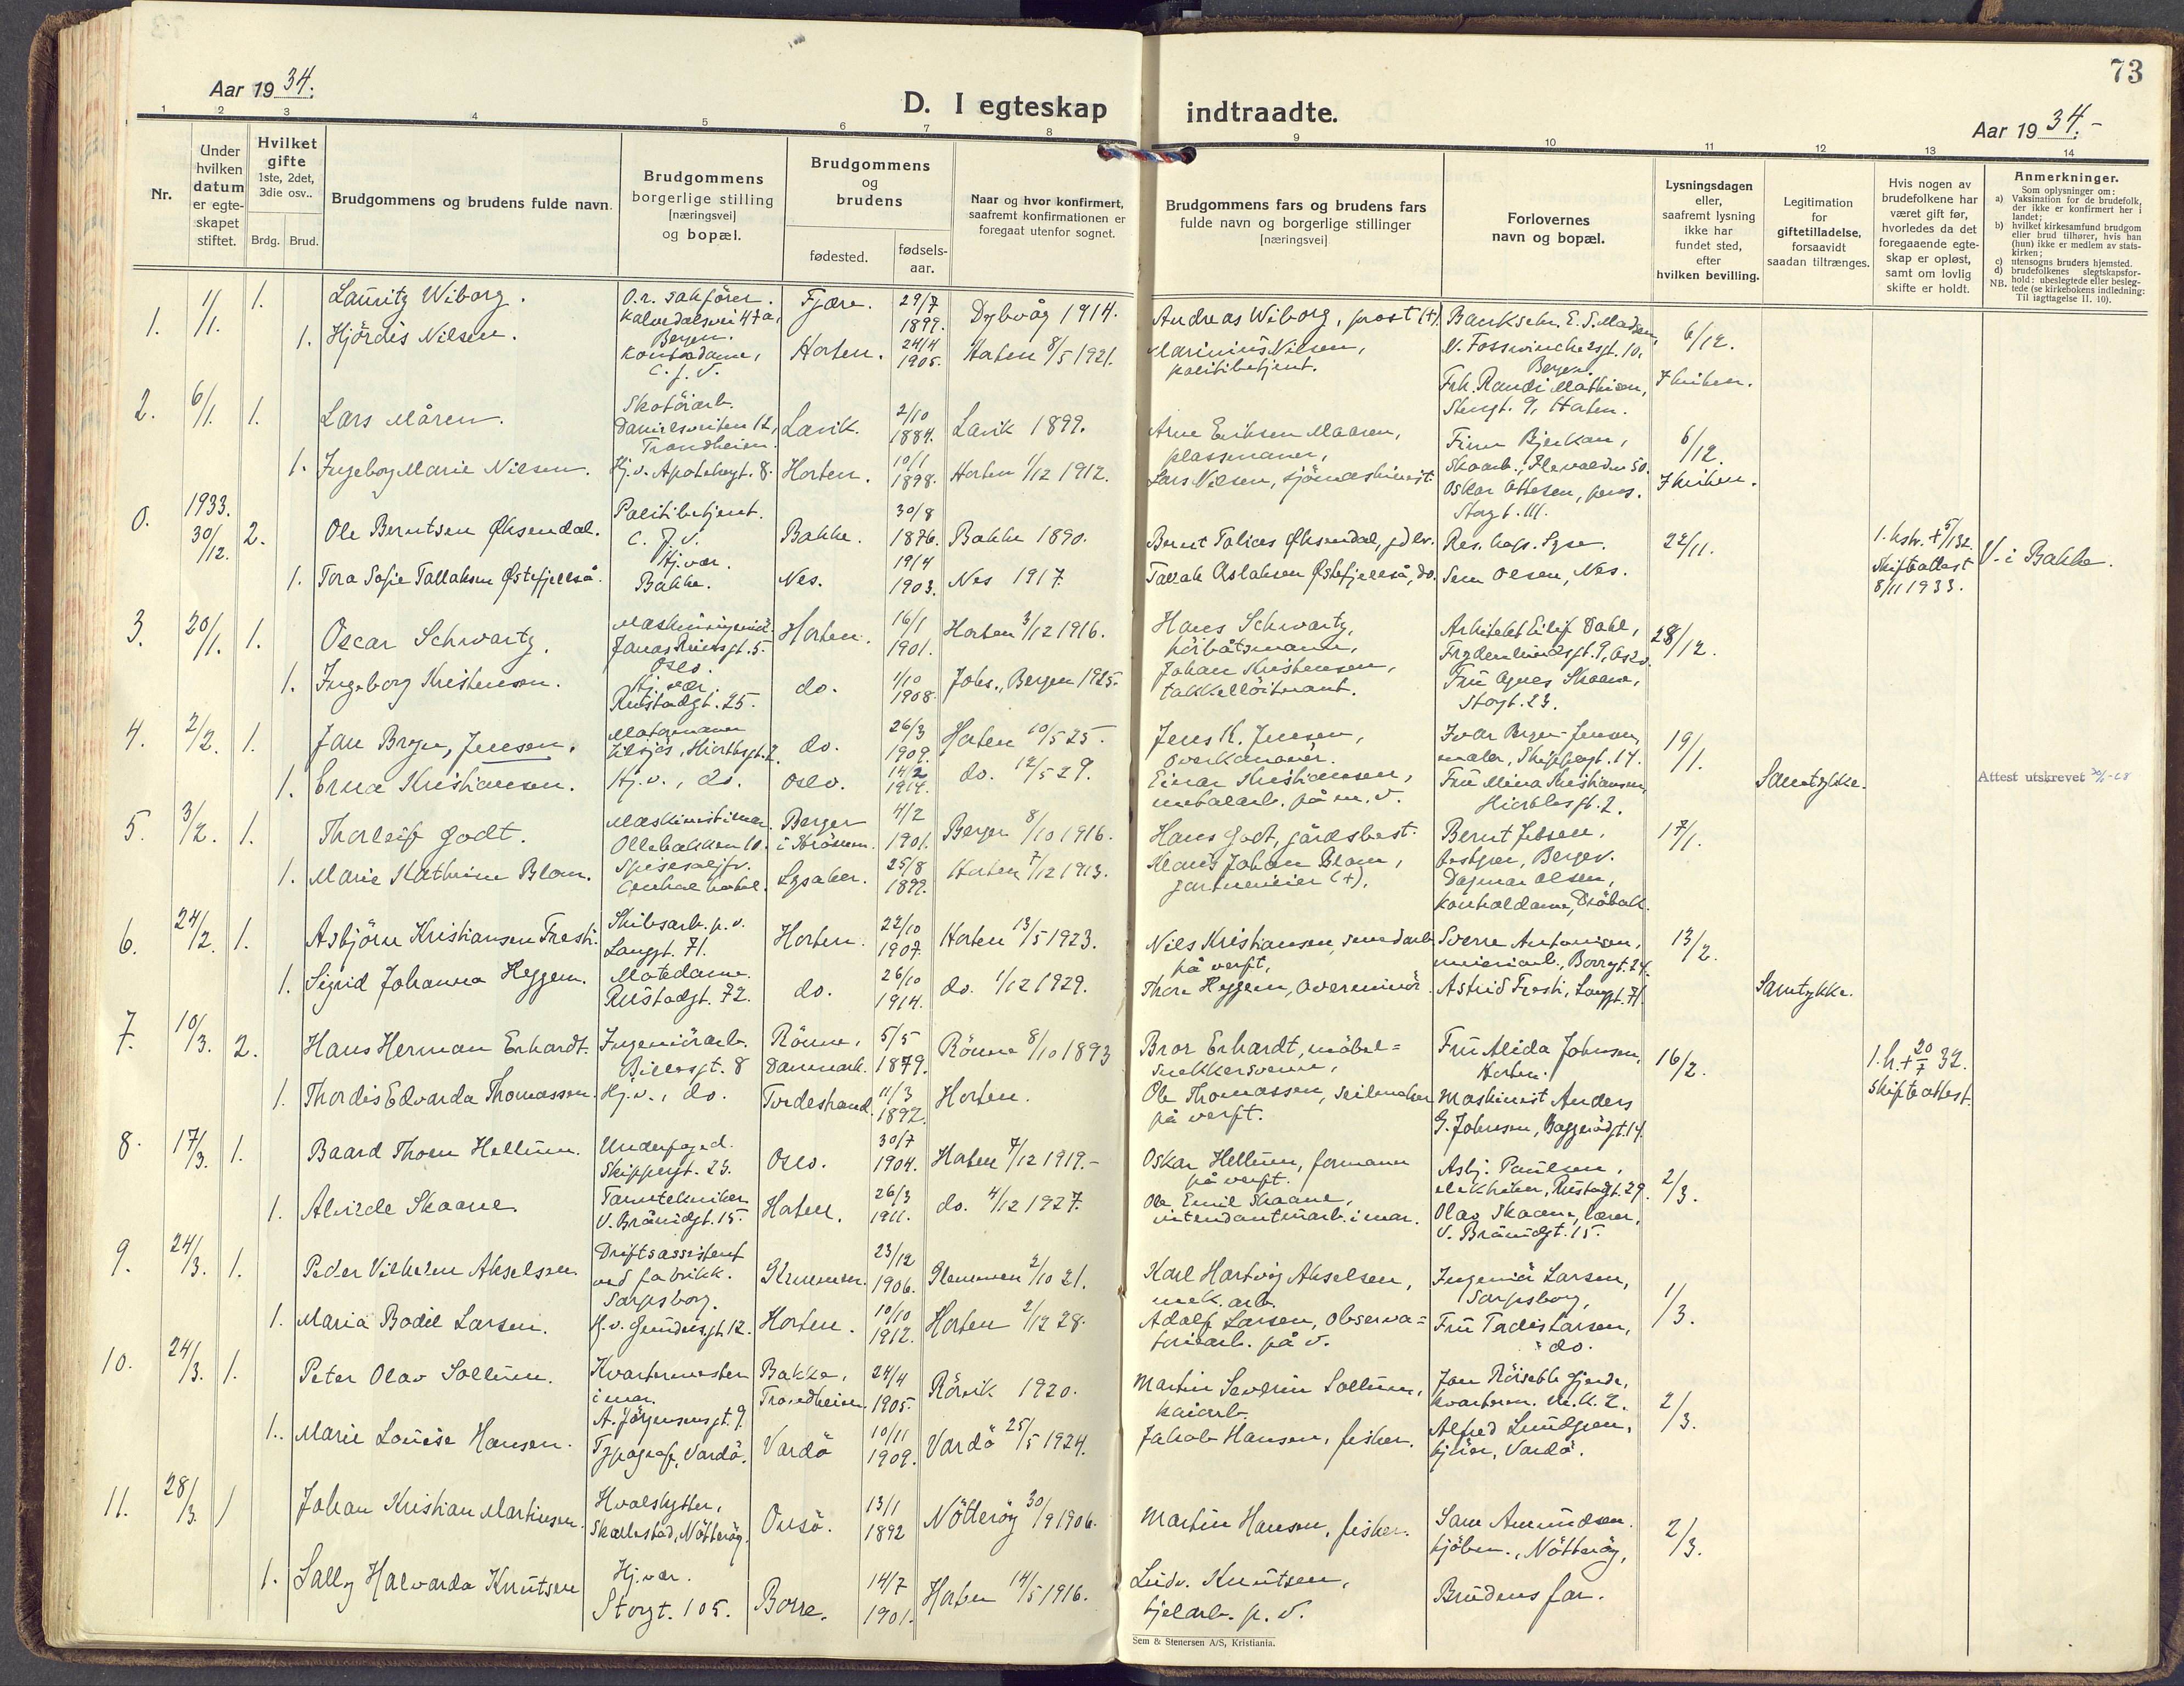 73
Aar 19 34.
D. I egteskap indtraadte.
Aar 19 34.-
1 2 3 4 5 6 7 8 9 10 11 12 13 14
Nr.
Under hvilken datum er egteskapet stiftet.
Hvilket gifte 1ste, 2det, 3die osv..
Brdg. Brud.
Brudgommens og brudens fulde navn.
Brudgommens borgerlige stilling [næringsvei] og bopæl.
Brudgommens og brudens
fødested.
fødsels-aar.
Naar og hvor konfirmert, saafremt konfirmationen er foregaat utenfor sognet.
Brudgommens fars og brudens fars fulde navn og borgerlige stillinger [næringsvei]
Forlovernes navn og bopæl.
Lysningsdagen eller, saafremt lysning ikke har fundet sted, efter hvilken bevilling.
Legitimation for giftetilladelse, forsaavidt saadan tiltrænges.
Hvis nogen av brudefolkene har været gift før, hvorledes da det foregaaende egteskap er opløst, samt om lovlig skifte er holdt.
Anmerkninger.
Som oplysninger om:
a) Vaksination for de brudefolk, der ikke er konfirmert her i landet;
b) hvilket kirkesamfund brudgom eller brud tilhører, hvis han (hun) ikke er medlem av statskirken;
c) utensogns bruders hjemsted.
d) brudefolkenes slegtskapsforhold: ubeslegtede eller beslegtede (se kirkebokens indledning:
NB. Til iagttagelse II. 10).
1. 1/1. 1. Lauritz Wiborg. O.r. sakfører. Kalvedalsvei 47a, Bergen. Fjære. 29/7 1899. Dybvåg 1914. Andreas Wiborg, prost (+). Banksekr. E. S. Madsen, 10, Bergen. 6/12.
1. Hjördis Nilsen. Kontordame, C. J. V. Horten. 24/4 1905. Horten 8/5 1921. Marinius Nilsen, politibetjent. Frk. Randi Mathisen, Stengt. 9, Horten. I kirken.
2. 6/1. 1. Lars Måren. Skotöiarb. 12, Trondheim. Lavik. 2/10 1884. Lavik 1899. Arne Eriksen Maaren, plassmann, Finn Bjerkan, Skoarb., 50. 6/12.
1. Ingeborg Marie Nilsen. Hj.v. Apothekgt. 8. Horten. 10/1 1898. Horten 1/12 1912. Lars Nilsen, sjömaskinist. Oskar Ottesen, pens. Storgt. 111. I kirken.
0. 1933. 30/12. 2. Ole Berntsen Øksendal. Politibetjent. Bakke. 30/8 1876. Bakke 1890. Bernt Tolias Øksendal, gdbr. Res. kap. Lyse. 22/11. 1. hstr. + 5/1 32. Skifteattest 8/11 1933. V. i Bakke.
1. Tora Sofie Tallaksen Østefjellså. Hj.vær. Bakke. Nes. 19/4 1903. Nes 1917. Tallak Aslaksen Østefjellså, do. Sem Olsen, Nes.
3. 20/1. 1. Oscar Schwartz. Maskiningeniör. Jonas Reinsgt. 5. Oslo. Horten. 16/1 1901. Horten 3/12 1916. Hans Schwartz, Arkitekt Eilif Dahl, Frydenlundsgt. 9, Oslo. 28/12.
1. Ingeborg Kristensen. Hj. vær. Rustadgt. 25. do. 1/10 1908. Johs., Bergen 1925. Johan Kristensen, takkellöitnant. Fru Agnes Skaane, Storgt. 23.
4. 2/2. 1. Jan Bryn, Jensen. Matormann, Hiorthsgt. 2. do. 26/3 1909. Horten 10/5 25. Jens K. Jensen, overkanoner. Ivar Bryn-Jensen, maler, Skippergt. 14. 19/1.
1. Erna Kristiansen. Hj.v., do. Oslo. 14/2 1914. do. 12/5 29. Einar Kristiansen, metalarb. på m. v. Fru Mina Kristiansen, Hiorthsgt. 2. Samtykke. Attest utskrevet
5. 3/2. 1. Thorleif Godt. Maskinist i mar. Ollebakken 10. Berger i Strömm. 4/2 1901. Berger 8/10 1916. Hans Godt, gårdsbest. Bernt Jebsen, Berger. 17/1.
1. Marie Kathrine Blom. Central hotel. Lysaker. 25/8 1899. Horten 7/12 1913. Klaus Johan Blom, gartnereier (+). Dagmar Olsen, kontordame, Dröbak.
6. 24/2. 1. Asbjörn Kristiansen Tresti. Skibsarb. p. v. Langgt. 71. Horten. 22/10 1907. Horten 13/5 1923. Nils Kristiansen, smedarb. på verft, Sverre Antonisen, meieriarb., Borregt. 24. 13/2.
1. Sigrid Johanna Heggem. Motedame. Rustadgt. 72. do. 26/10 1914. do. 1/12 1929. Thore Heggem, overminör. Astrid Tresti, Langgt. 71. Samtykke.
7. 10/3. 2. Hans Herman Erhardt. Ingeniörarb. Billesgt. 8 Rönne, Danmark. 5/5 1879. Rönne 8/10 1893 Bror Erhardt, möbelsnekkersvenn, Fru Alida Johnsen, Horten. 16/2. 1. h. + 20/7 32. Skifteattest.
1. Thordis Edvarda Thomassen. Hj.v., do. Tvedestrand. 11/3 1892. Horten. Ole Thomassen, seilmaker på verft. Maskinist Anders G. Johnsen, Baggerödgt. 14.
8. 17/3. 1. Baard Thorn Hellum. Underfoged. Skippergt. 23. Oslo. 30/7 1904. Horten 7/12 1919.- Oskar Hellum, formann på verft. Asbj. Paulsen, elektriker, Rustadgt. 29. 2/3.
1. Alvilde Skaane. Tanntekniker V. Bråmidgt. 15. Horten. 26/3 1911. do. 4/12 1927. Ole Emil Skaane, intendanturarb. i mar. Olav Skaane, lærer, V. Bråmidgt. 15.
9. 24/3. 1. Peder Vilhelm Akselsen. Driftsassistent ved fabrikk. Sarpsborg. Glemmen. 23/12 1906. Glemmen 2/10 21. Karl Hartvig Akselsen, mek. arb. Ingeniör Larsen, Sarpsborg, 1/3.
1. Maria Bodil Larsen. Hj.v. 12. Horten. 10/10 1912. Horten 2/12 28. Adolf Larsen, observatoriearb. på v. Fru Terdis Larsen, do.
10. 24/3. 1. Peter Olav Sollum. Kvartermester i mar. A. Jörgensensgt. 9. Bakke, Trondheim. 24/4 1905. Rörvik 1920. Martin Severin Sollum, kaiarb. kvarterm. 2/3.
1. Marie Louise Hansen. Typograf, Vardö. Vardö 10/11 1909. Vardö 25/5 1924. Jakob Hansen, fisker. Alfred Lundgren, Vardö.
11. 28/3. 1 Johan Kristian Martinsen. Hvalskytter, Skallestad, Nötteröy. Onsö. 13/1 1892 Nötteröy 30/9 1906. Martin Hansen, fisker. Sam Amundsen. Nötteröy, 2/3.
1. Sally Halvarda Knutsen Hj.vær. Storgt. 105. Borre. 14/7 1901. Horten 14/5 1916. Ludv. Knutsen, kjelarb. p. v. Brudens far.
Sem & Stenersen A/S, Kristiania.